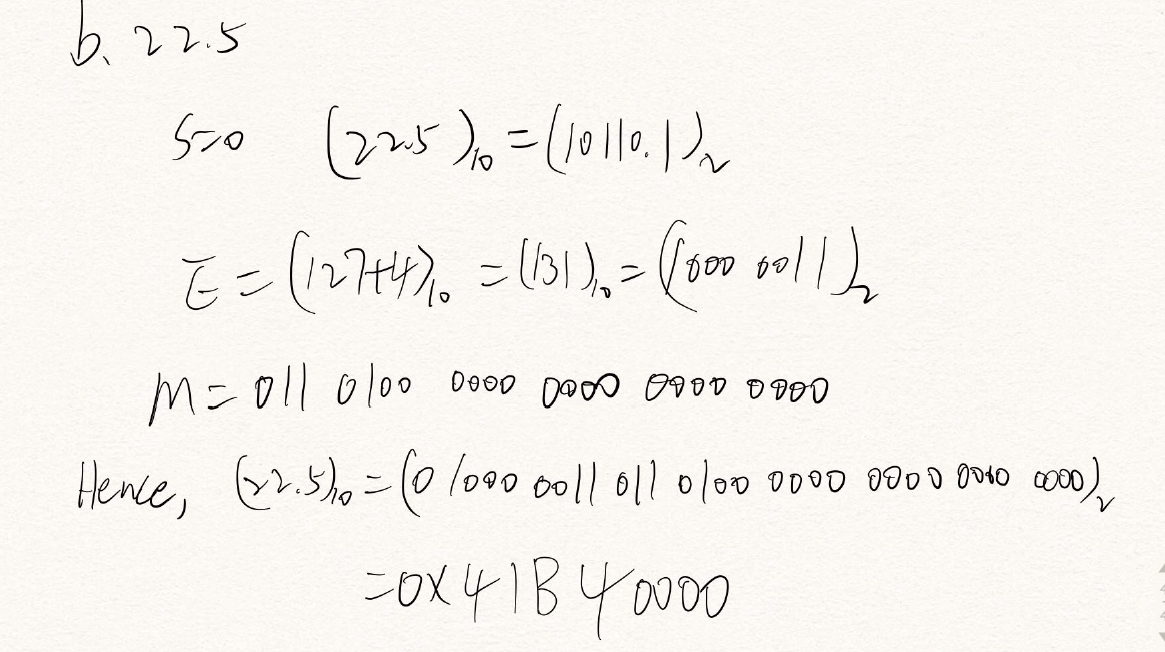 b. 22.5
S=0 (22.5)₁₀=(10110.1)₂
E=(127+4)₁₀=(131)₁₀=(1000 0011)₂
M=011 0100 0000 0000 0000 0000
Hence, (22.5)₁₀=(0 1000 0011 011 0100 0000 0000 0000 0000)₂
=0x41B40000